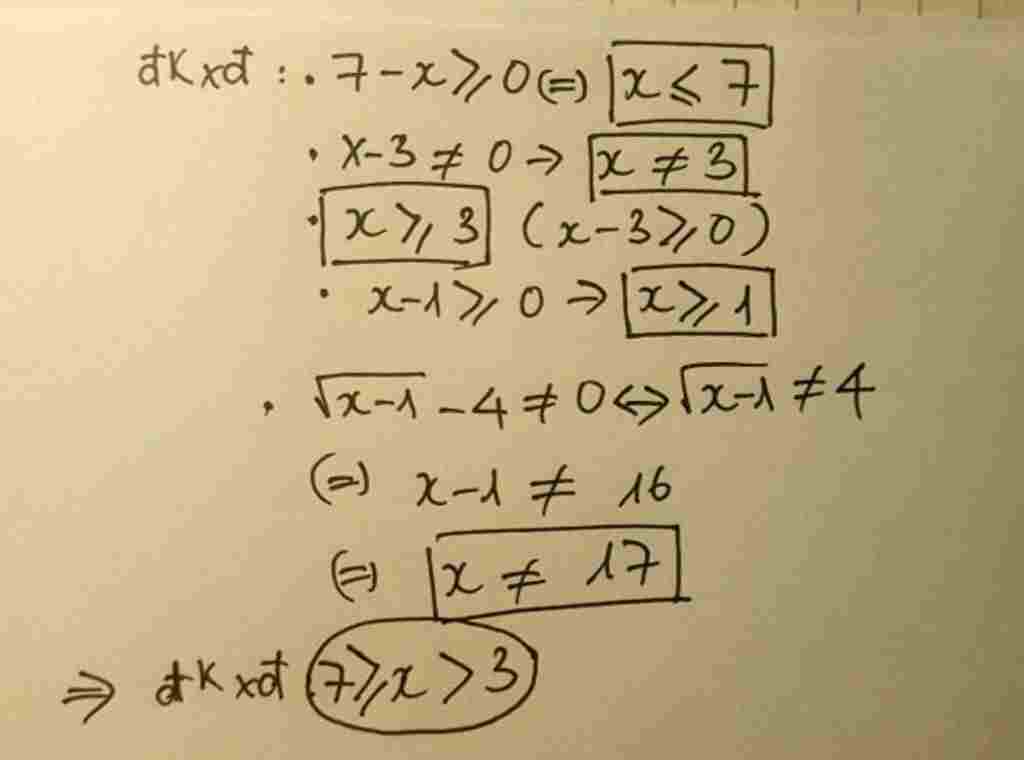 đKxđ : . 7 - x ⩾ 0 (=) x ⩽ 7
. x - 3 ≠ 0 → x ≠ 3
. x ⩾ 3 (x - 3 ⩾ 0)
. x - 1 ⩾ 0 → x ⩾ 1
. √(x-1) - 4 ≠ 0 ↔ √(x-1) ≠ 4
(=) x - 1 ≠ 16
(=) x ≠ 17
⇒ đKxđ 7 ⩾ x > 3